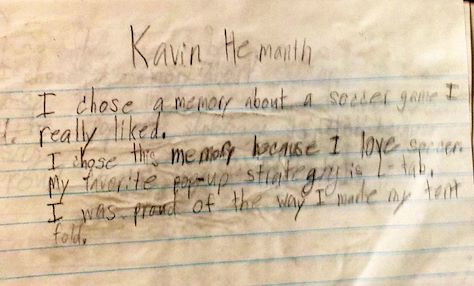 Kavin Hemanth
I chose a memory about a soccer game I
really liked.
I chose this memory because I love soccer.
My favorite pop-up strategy is L-tab.
I was proud of the way I made my tent
fold.